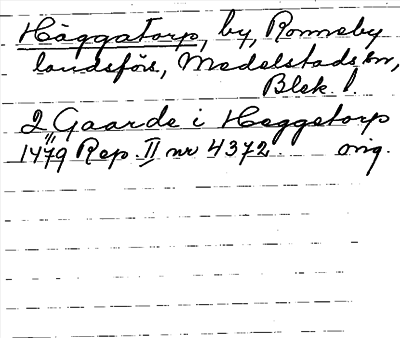 Häggatorp, by, Ronneby
landsförs, Medelstads hr,
Blek. l.
2 Gaarde i Heggetorp
1479 Rep. II nr 4372 orig.